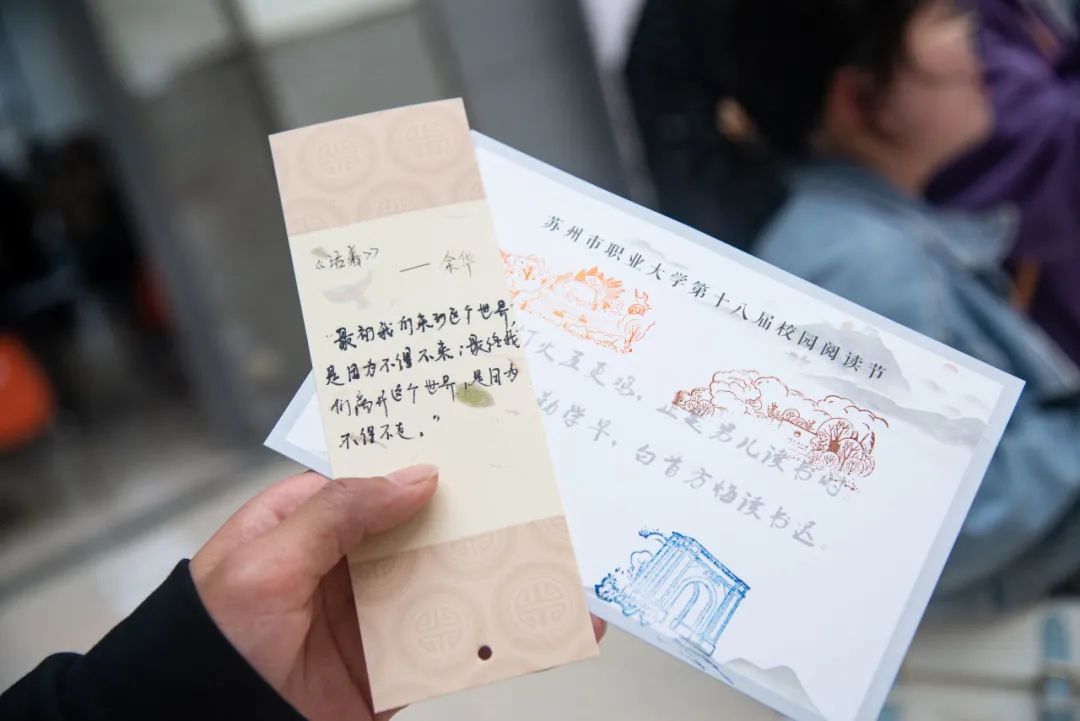 《活着》
——余华
“最初我们来到这个世界,
是因为不得不来;最终我
们离开这个世界,是因为
不得不走。”
苏州市职业大学第十八届校园阅读节
火五更鸡,正是男儿读书时。
勤学早,白首方悔读书迟。